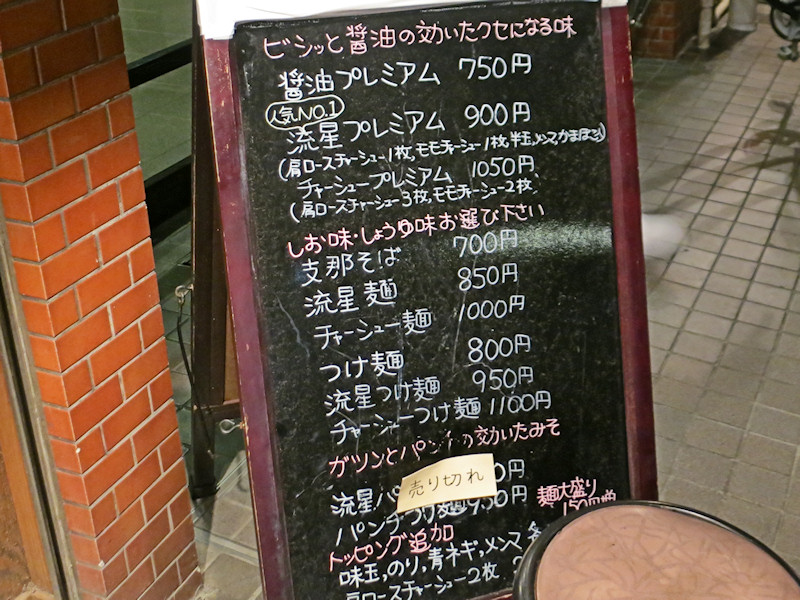 ビシッと醤油の効いたクセになる味
醤油プレミアム 750円
人気NO.1
流星プレミアム 900円
(肩ロースチャーシュー1枚,モモチャーシュー1枚,半玉,メンマ,かまぼこ)
チャーシュープレミアム 1050円
(肩ロースチャーシュー3枚,モモチャーシュー2枚,
しお味・しょうゆ味お選び下さい
支那そば 700円
流星麺 850円
チャーシュー麺 1000円
つけ麺 800円
流星つけ麺 950円
チャーシューつけ麺 1100円
ガツンとパンチの効いたみそ
流星パ 0円
売り切れ
パンチつけ麺 950円
麺大盛り
150円増
トッピング追加
味玉,のり,青ネギ,メンマ 各
肩ロースチャーシュー2枚